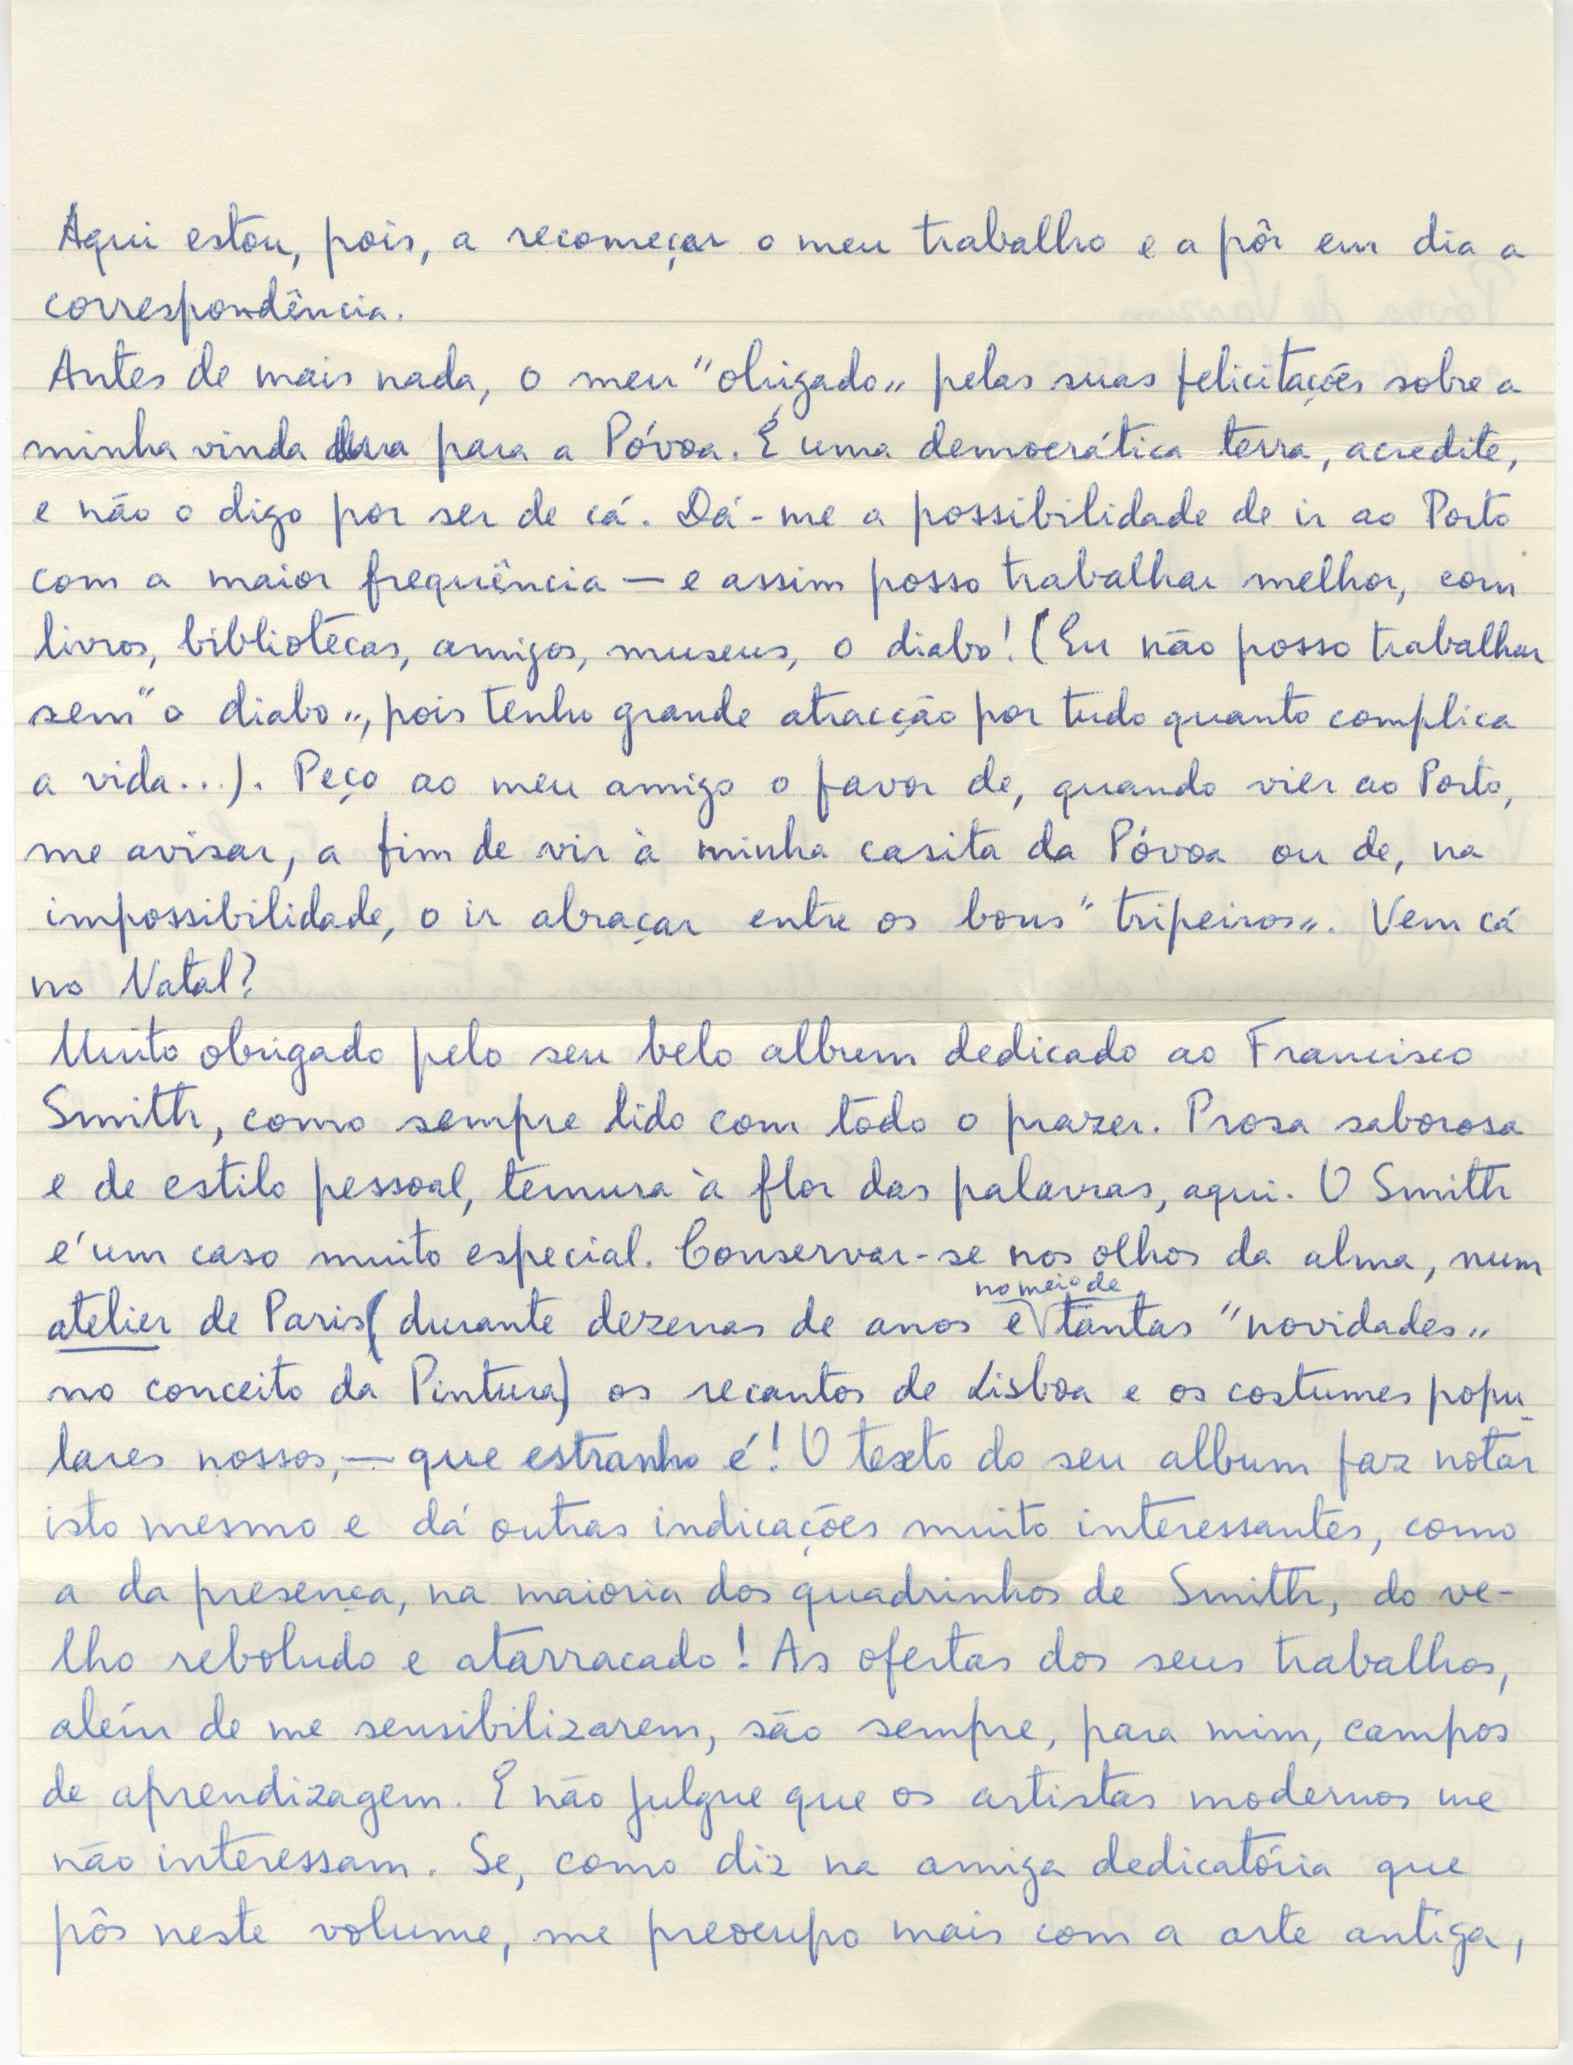 Aqui estou, pois, a recomeçar o meu trabalho e a pôr em dia a
correspondência.
Antes de mais nada, o meu "obrigado„ pelas suas felicitações sobre a
minha vinda para a Póvoa. É uma democrática terra, acredite,
e não o digo por ser de cá. Dá-me a possibilidade de ir ao Porto
com a maior frequência — e assim posso trabalhar melhor, com
livros, bibliotecas, amigos, museus, o diabo! (Eu não posso trabalhar
sem "o diabo„, pois tenho grande atracção por tudo quanto complica
a vida...). Peço ao meu amigo o favor de, quando vier ao Porto,
me avisar, a fim de vir à minha casita da Póvoa ou de, na
impossibilidade, o ir abraçar entre os bons "tripeiros„. Vem cá
no Natal?
Muito obrigado pelo seu belo album dedicado ao Francisco
Smith, como sempre lido com todo o prazer. Prosa saborosa
e de estilo pessoal, ternura à flor das palavras, aqui. O Smith
é um caso muito especial. Conservar-se nos olhos da alma, num
atelier de Paris (durante dezenas de anos e no meio de tantas "novidades„
no conceito da Pintura) os recantos de Lisboa e os costumes popu-
lares nossos, — que estranho é! O texto do seu album faz notar
isto mesmo e dá outras indicações muito interessantes, como
a da presença, na maioria dos quadrinhos de Smith, do ve-
lho reboludo e atarracado! As ofertas dos seus trabalhos,
além de me sensibilizarem, são sempre, para mim, campos
de aprendizagem. E não julgue que os artistas modernos me
não interessam. Se, como diz na amiga dedicatória que
pôs neste volume, me preocupo mais com a arte antiga,